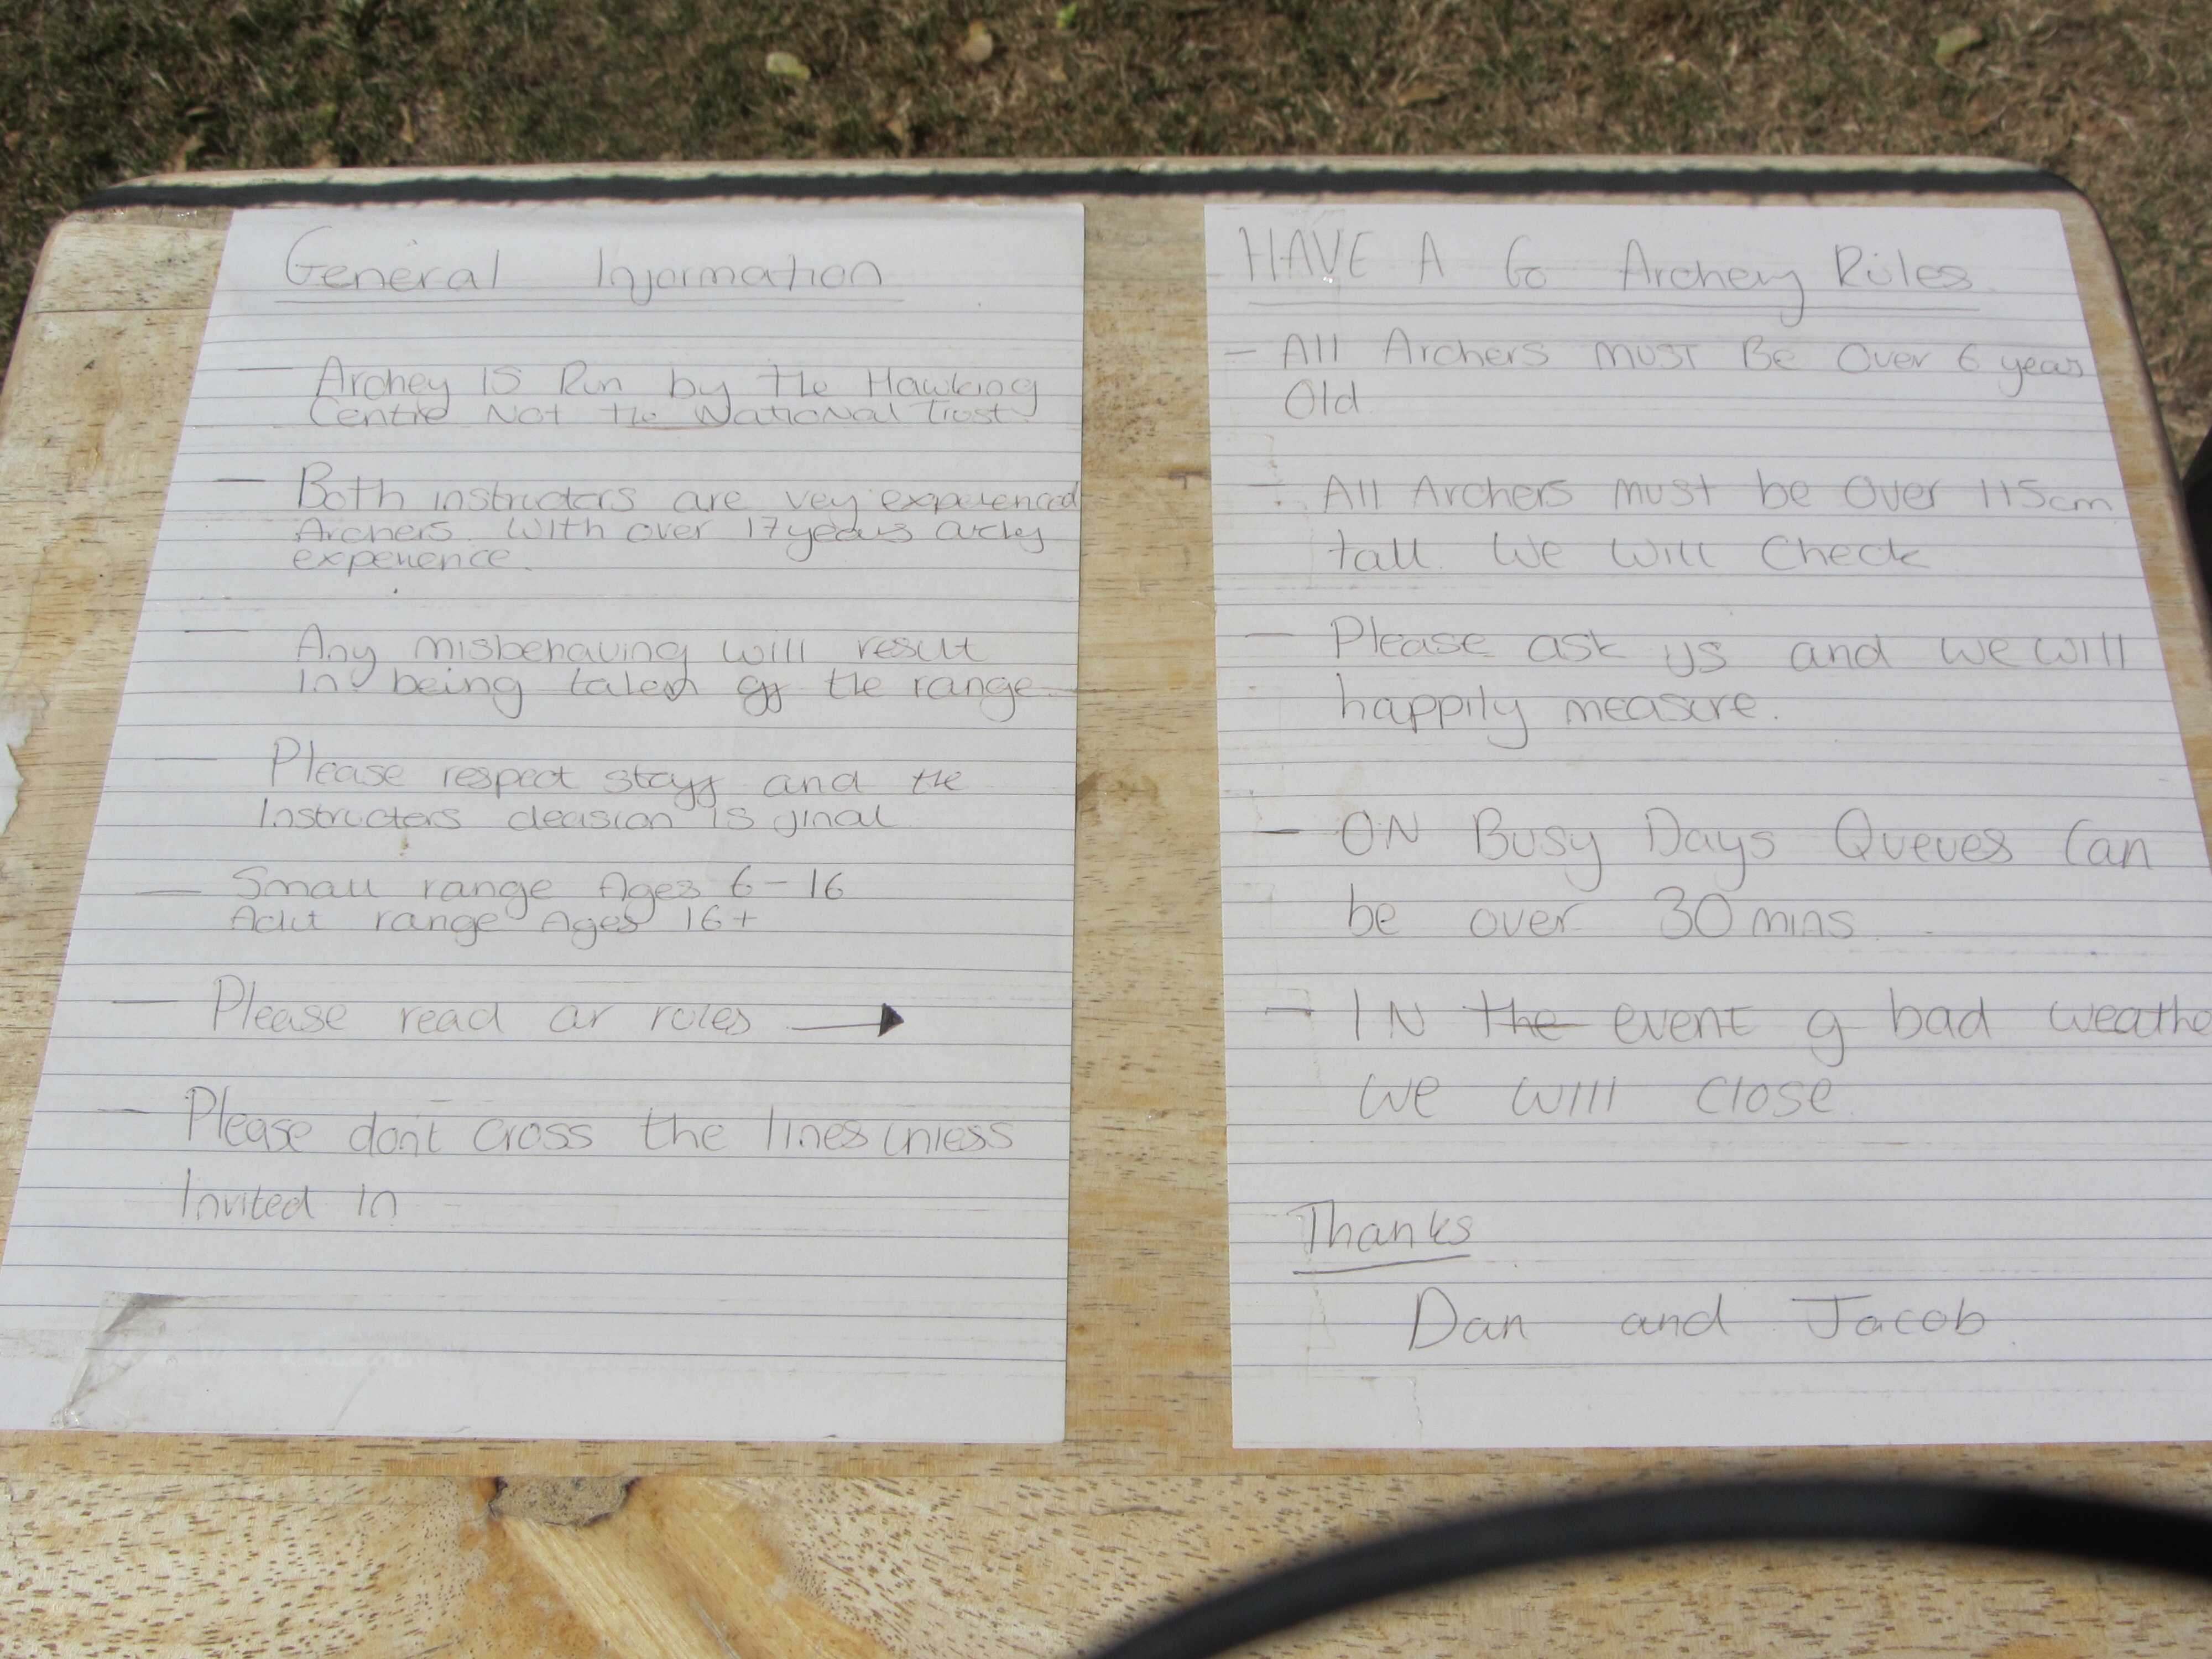 General Information
- Archey is Run by the Hawking
Centre Not the National Trust.
- Both instructors are vey experienced
Archers. With over 17 years
experience.
- Any misbehaving will result
in being taken off the range.
- Please respect staff and the
Instructers decision is final
- Small range Ages 6-16
Adult range Ages 16+
- Please read our rules →
- Please dont cross the lines unless
Invited in
HAVE A Go Archery Rules
- All Archers must Be Over 6 years
Old
- All Archers must be over 115cm
tall. We Will Check
- Please ask us and we will
happily measure.
- ON Busy Days Queues Can
be over 30 mins
- IN the event of bad weathe
we will close
Thanks
Dan and Jacob